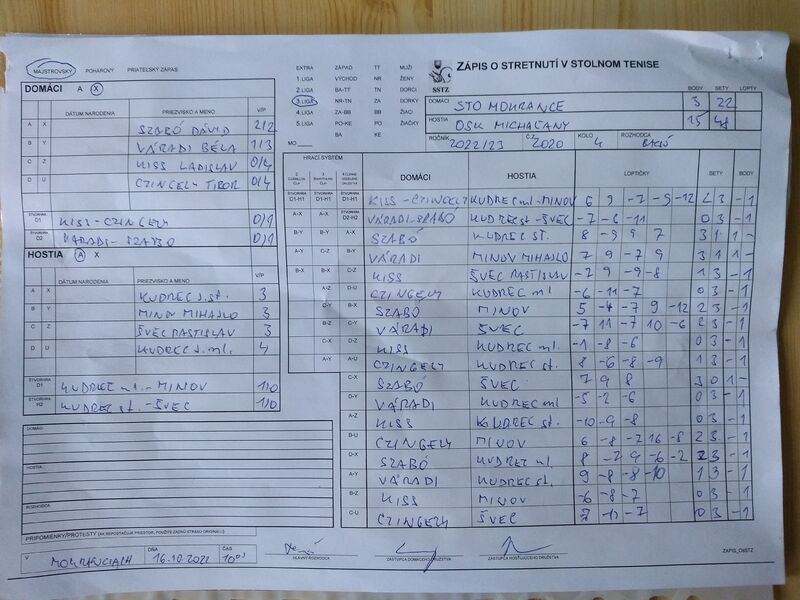 MAJSTROVSKÝ POHÁROVÝ PRIATEĽSKÝ ZÁPAS
DOMÁCI A X
DÁTUM NARODENIA PRIEZVISKO A MENO V/P
A X SZABÓ DÁVID 2/2
B Y VÁRADI BÉLA 1/3
C Z KISS LADISLAV 0/4
D U CZINGELY TIBOR 0/4
ŠTVORHRA D1 KISS-CZINGELY 0/1
ŠTVORHRA D2 VÁRADI-SZABÓ 0/1
HOSTIA A X
DÁTUM NARODENIA PRIEZVISKO A MENO V/P
A X KUDREC J. st. 3
B Y MINOV MIHAJLO 3
C Z ŠVEC RASTISLAV 3
D U KUDREC J. ml. 4
KUDREC ml.-MINOV 1/0
KUDREC st.-ŠVEC 1/0
DOMÁCI:
HOSTIA:
ROZHODCA:
PRIPOMIENKY/PROTESTY (AK NEPOSTAČUJE PRIESTOR, POUŽITE ZADNÚ STRANU ORIGINÁLU)
V DŇA 16.10.2022 ČAS 10
EXTRA ZÁPAD TT MUŽI
1.LIGA VÝCHOD NR ŽENY
2.LIGA BA-TT TN DORCI
3.LIGA NR-TN ZA DORKY
4.LIGA ZA-BB BB ŽIACI
5.LIGA PO-KE PO ŽIAČKY
BA KE
MO
SSTZ
ZÁPIS O STRETNUTÍ V STOLNOM TENISE
BODY SETY LOPTY
DOMÁCI STO MOKRANCE 3 22
HOSTIA OSK MICHAĽANY 15 48
ROČNÍK 2022/23 Č.Z. 2020 KOLO 4 ROZHODCA
HRACÍ SYSTÉM
DOMÁCI HOSTIA LOPTIČKY SETY BODY
D1-H1 D1-H1 D1-H1 KISS-CZINGELY KUDREC ml-MINOV 6 9 -7 -9 -12 2 3 -1
A-X VÁRADI-SZABÓ KUDREC st-ŠVEC -7 -6 -11 0 3 -1
B-Y B-Y A-X SZABÓ KUDREC st. 8 -9 9 7 3 1 1 -
A-Y C-Z B-Y VÁRADI MINOV MIHAJLO 7 9 -7 9 3 1 1 -
B-X B-X C-Z KISS ŠVEC RASTISLAV -2 9 -9 -8 1 3 -1
A-Z D-U CZINGELY KUDREC ml -6 -11 -7 0 3 -1
SZABÓ MINOV 5 -4 -7 9 -12 2 3 -1
B-Z C-Y VÁRADI ŠVEC -7 11 -7 10 -6 2 3 -1
C-X D-Z KISS KUDREC ml -1 -8 -6 0 3 -1
A-Y A-U CZINGELY KUDREC st. 8 -6 -8 -9 1 3 -1
C-X SZABÓ ŠVEC 7 9 8 3 0 1 -
D-Y VÁRADI KUDREC ml -5 -2 -6 0 3 -1
A-Z KISS KUDREC st. -10 -9 -8 0 3 -1
B-U CZINGELY MINOV 6 -8 -7 16 -8 2 3 -1
D-X SZABÓ KUDREC ml. 8 -7 9 -6 -2 2 3 -1
A-Y VÁRADI KUDREC st. 9 -8 -8 -10 1 3 -1
B-Z KISS MINOV -6 -8 -7 0 3 -1
C-U CZINGELY ŠVEC 0 3 -1
HLAVNÝ ROZHODCA ZÁSTUPCA DOMÁCEHO DRUŽSTVA ZÁSTUPCA HOSŤUJÚCEHO DRUŽSTVA
ZÁPIS_OsSTZ